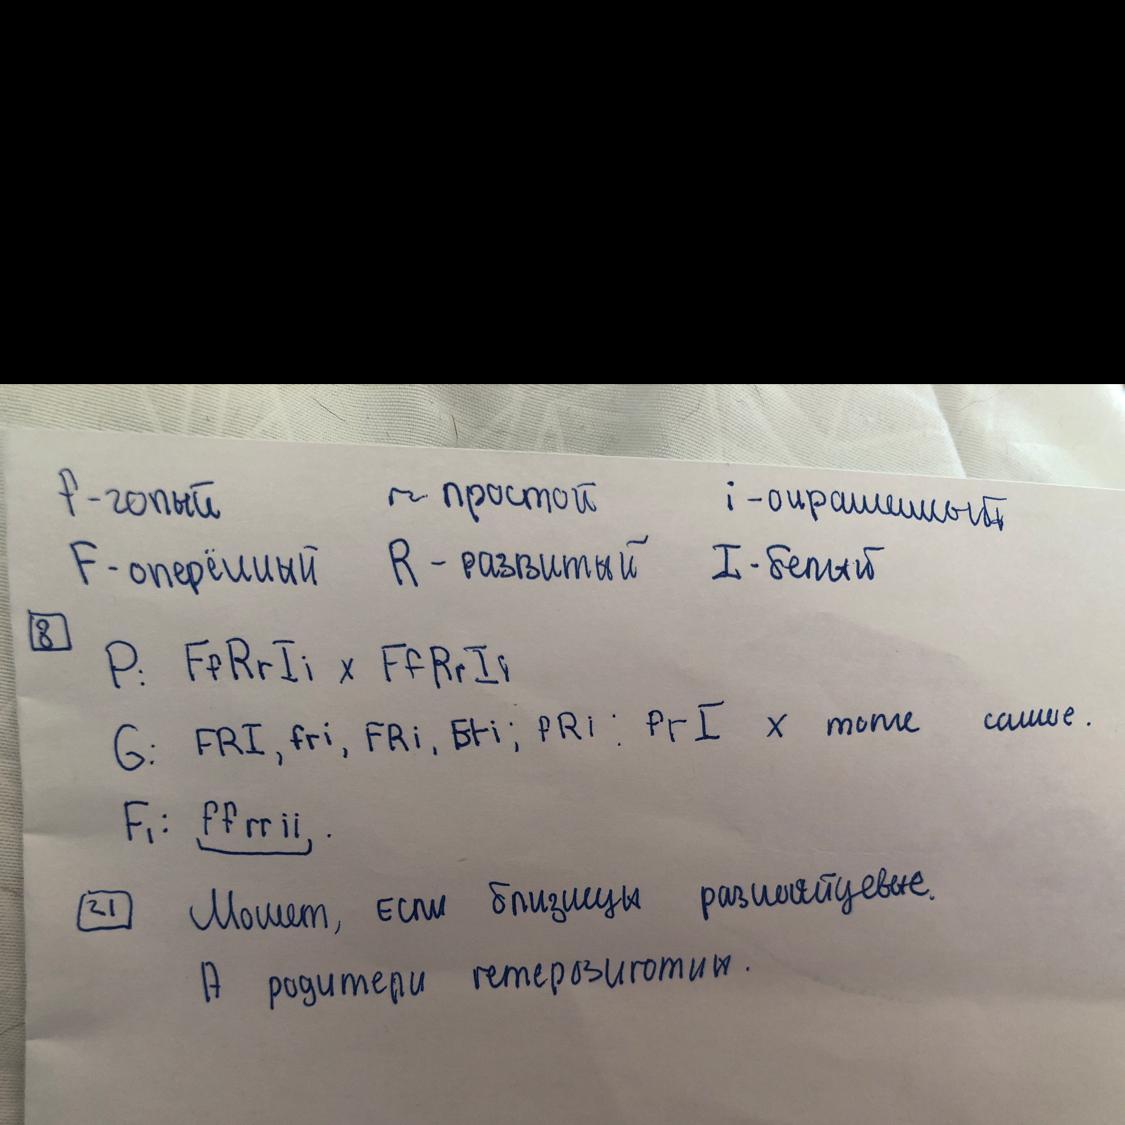 f-голый r-простой i-окрашенный
F-оперённый R-развитый I-белый
8 P: FfRrIi x FfRrIi
G: FRI, fri, FRi, Fri; fRi; frI x тоже самое.
F₁: ffrrii.
21 Может, если близнецы разнояйцевые.
А родители гетерозиготны.